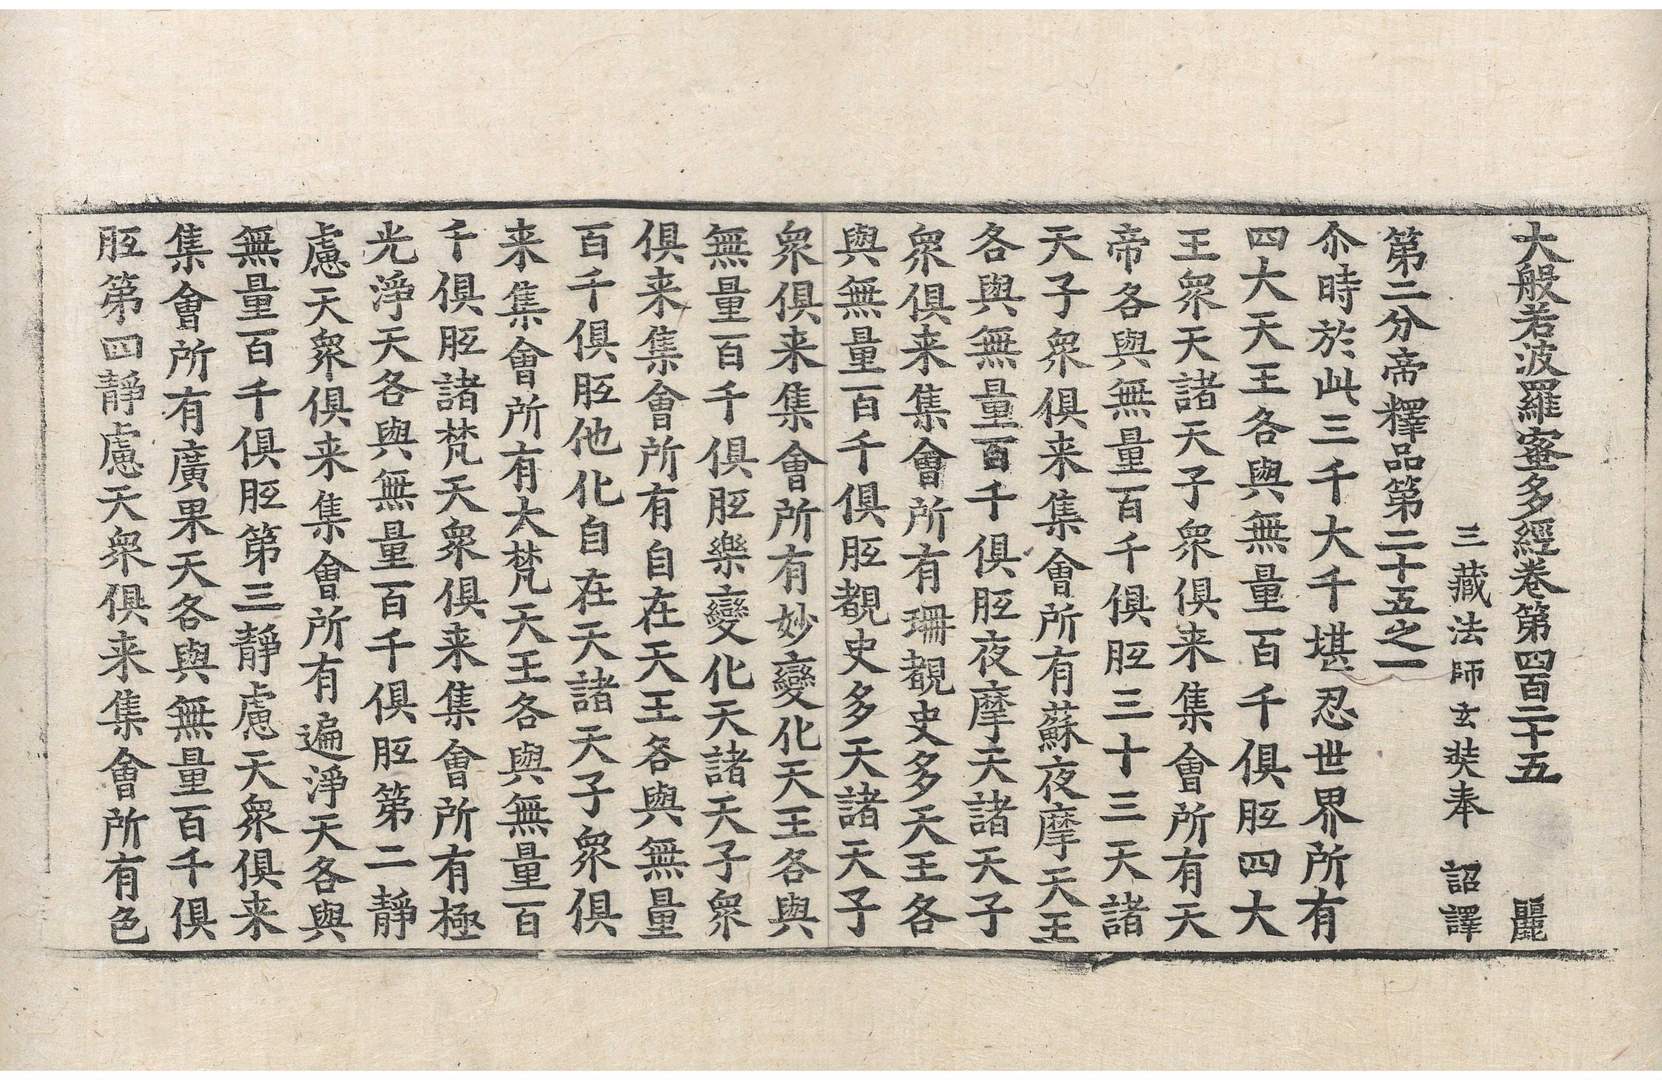 大般若波羅蜜多經卷第四百二十五 麗
三藏法師玄奘奉 詔譯
第二分帝釋品第二十五之一
尒時於此三千大千堪忍世界所有
四大天王各與無量百千俱胝四大
王眾天諸天子眾俱来集會所有天
帝各與無量百千俱胝三十三天諸
天子眾俱来集會所有蘇夜摩天王
各與無量百千俱胝夜摩天諸天子
眾俱来集會所有珊覩史多天王各
與無量百千俱胝覩史多天諸天子
眾俱来集會所有妙變化天王各與
無量百千俱胝樂變化天諸天子眾
俱来集會所有自在天王各與無量
百千俱胝他化自在天諸天子眾俱
来集會所有大梵天王各與無量百
千俱胝諸梵天眾俱来集會所有極
光淨天各與無量百千俱胝第二靜
慮天眾俱来集會所有遍淨天各與
無量百千俱胝第三靜慮天眾俱来
集會所有廣果天各與無量百千俱
胝第四靜慮天眾俱来集會所有色